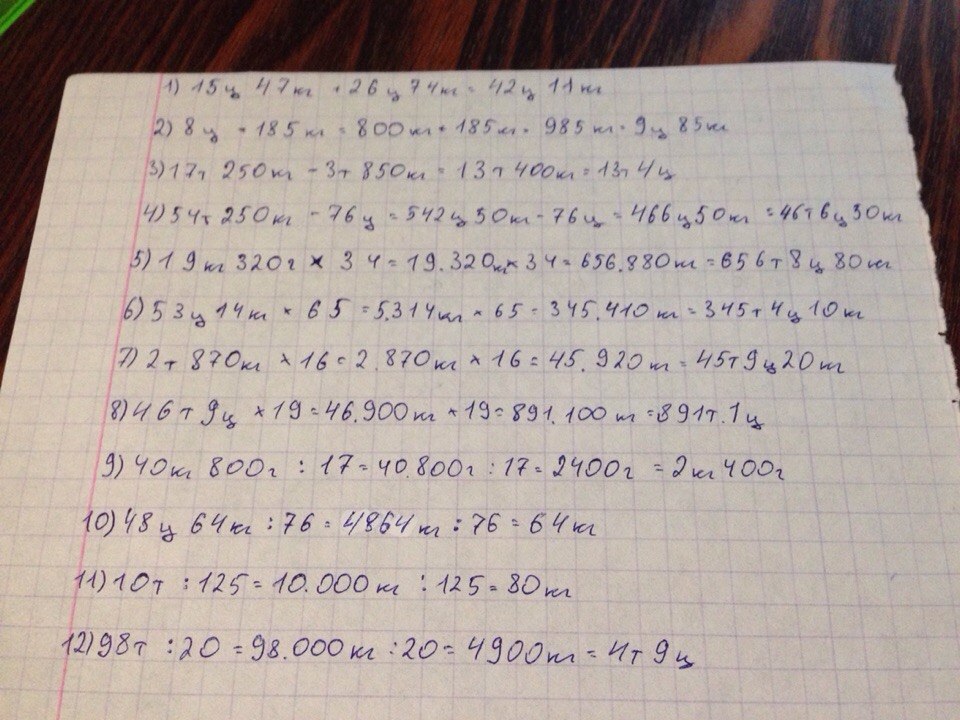 1) 15ц 47кг + 26ц 74кг = 42ц 11кг
2) 8ц + 185кг = 800кг + 185кг = 985кг = 9ц 85кг
3) 17т 250кг - 3т 850кг = 13т 400кг = 13т 4ц
4) 54т 250кг - 76ц = 542ц 50кг - 76ц = 466ц 50кг = 46т 6ц 50кг
5) 19кг 320г × 34 = 19.320кг × 34 = 656.880кг = 656т 8ц 80кг
6) 53ц 14кг × 65 = 5.314кг × 65 = 345.410кг = 345т 4ц 10кг
7) 2т 870кг × 16 = 2.870кг × 16 = 45.920кг = 45т 9ц 20кг
8) 46т 9ц × 19 = 46.900кг × 19 = 891.100кг = 891т. 1ц
9) 40кг 800г : 17 = 40.800г : 17 = 2400г = 2кг 400г
10) 48ц 64кг : 76 = 4864кг : 76 = 64кг
11) 10т : 125 = 10.000кг : 125 = 80кг
12) 98т : 20 = 98.000кг : 20 = 4900кг = 4т 9ц